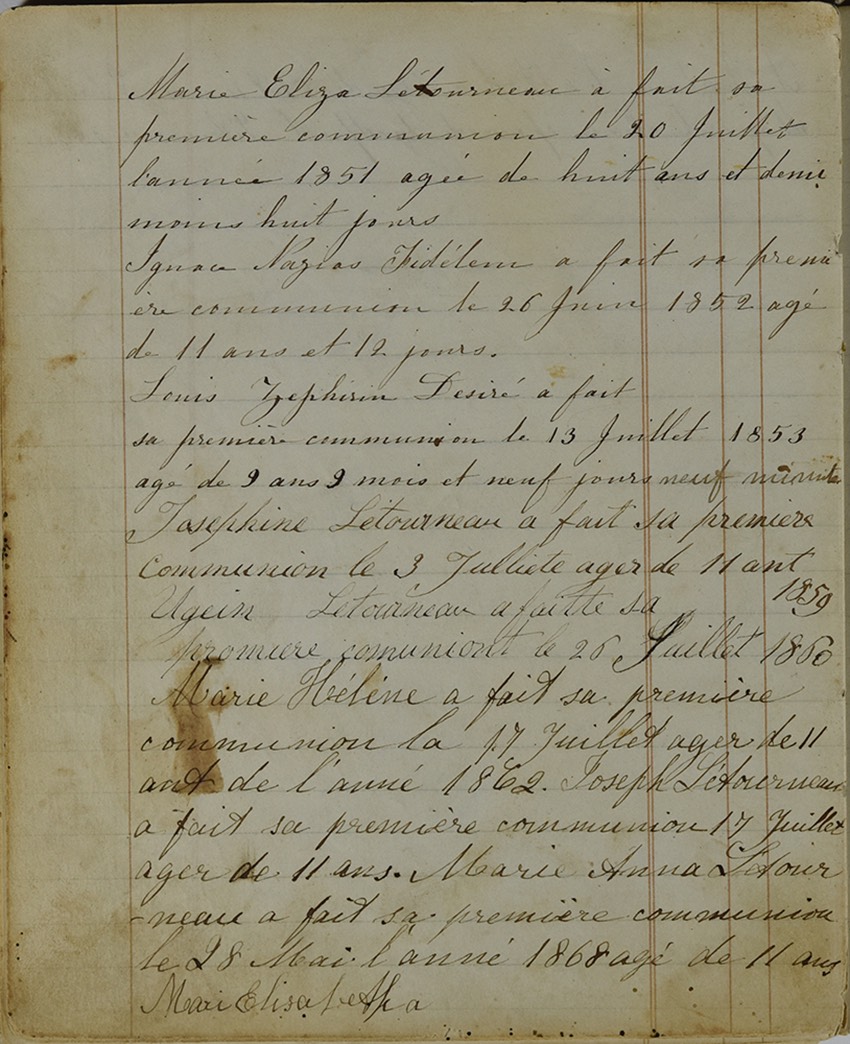 Marie Eliza Létourneau à fait sa
première communion le 20 Juillet
l'année 1851 agée de huit ans et demie
moins huit jours
Ignace Nazias Fidélem a fait sa premi
ère communion le 26 Juin 1852 agé
de 11 ans et 12 jours.
Louis Zephirin Desiré a fait
sa première communion le 13 Juillet 1853
agé de 9 ans 9 mois et neuf jours neuf minute
Josephine Létourneau a fait sa premiere
communion le 3 Julliete ager de 11 ant
1859
Ugein Letourneau a faitte sa
promiere comuniont le 26 Juillet 1860
Marie Héléne a fait sa première
communion la 17 Juillet ager de 11
ant de l'anné 1862. Joseph Létourneau
a fait sa première communion 17 Juillet
ager de 11 ans. Marie Anna Létour
-neau a fait sa première communion
le 28 Mai l'anné 1868 agé de 11 ans
Mari Elisabeth a